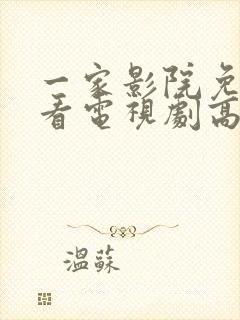 一家影院免
看電視劇高
溫蘇